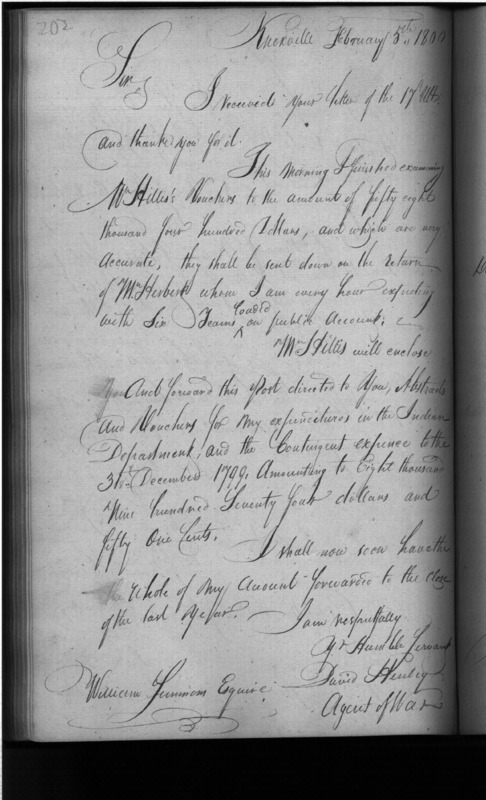 202
Knoxville February 5th 1800
Sir,
I received your letter of the 17th Ulto.
and thank you for it.
This morning I finished examining
Mr Hillis's Vouchers to the amount of fifty eight
thousand four hundred Dollars, and which are very
Accurate, they shall be sent down on the return
of Mr Herbert whom I am every hour expecting
with Six Teams loaded on public Account;
Mr Hillis will enclose
you And forward this Post directed to You, Abstracts
And Vouchers for my expenditures in the Indian
Department, and the Contingent expence to the
31st December 1799, Amounting to Eight thousand
Nine hundred Seventy four dollars and
fifty One Cents.
I shall now soon have the
the Whole of my Account forwarded to the close
of the last Year.
I am respectfully
Yr Humble Servant
David Henley
William Simmons Esquire
Agent of War